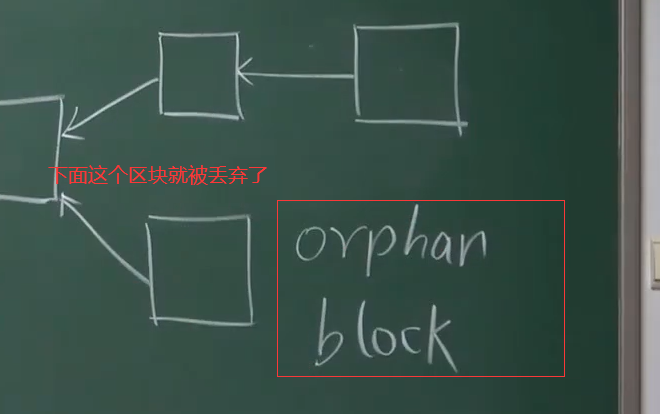 下面这个区块就被丢弃了
orphan
block